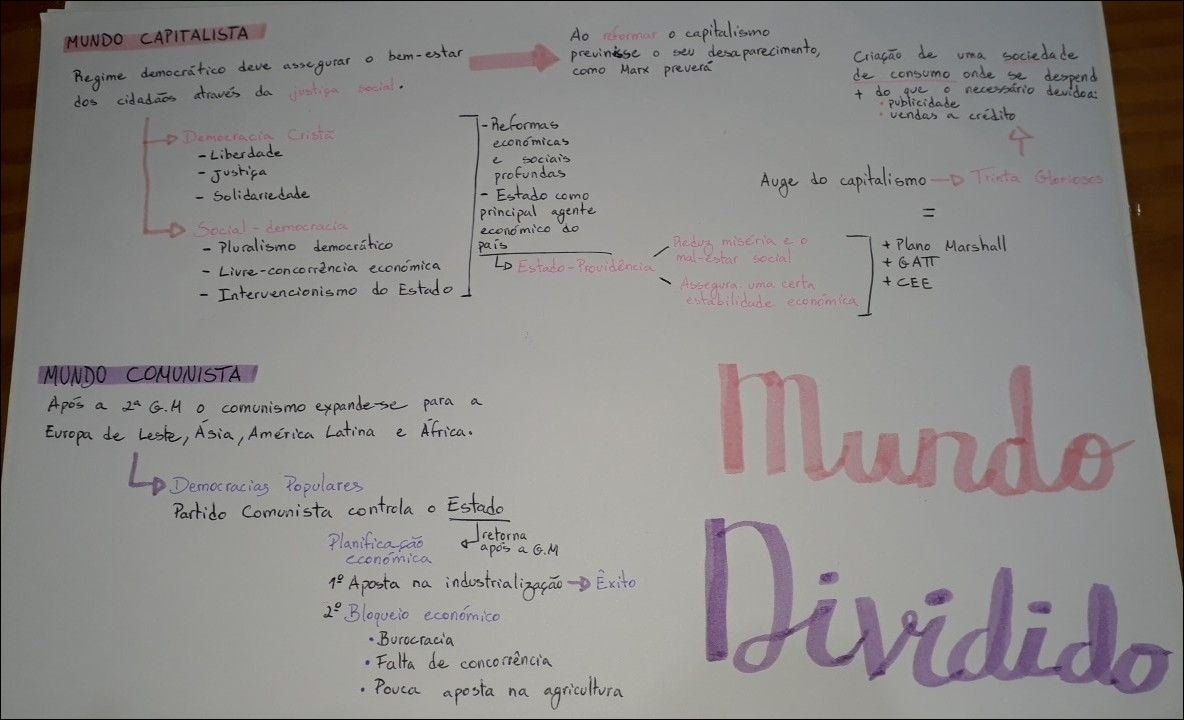 MUNDO CAPITALISTA
Regime democrático deve assegurar o bem-estar
dos cidadãos através da justiça social.
Ao reformar o capitalismo
previnisse o seu desaparecimento,
como Marx preverá
Criação de uma sociedade
de consumo onde se despend
+ do que o necessário devidoa:
• publicidade
• vendas a crédito
Democracia Cristã
- Liberdade
- Justiça
- Solidariedade
Social-democracia
- Pluralismo democrático
- Livre-concorrência económica
- Intervencionismo do Estado
- Reformas
económicas
e sociais
profundas
- Estado como
principal agente
económico do
país
Estado-Providência
Reduz miséria e o
mal-estar social
Assegura uma certa
estabilidade económica
Auge do capitalismo → Trinta Gloriosos
=
+ Plano Marshall
+ GATT
+ CEE
MUNDO COMUNISTA
Após a 2ª G.M o comunismo expande-se para a
Europa de Leste, Ásia, América Latina e África.
Democracias Populares
Partido Comunista controla o Estado
retorna
após a G.M
Planificação
económica
1º Aposta na industrialização → Êxito
2º Bloqueio económico
• Burocracia
• Falta de concorrência
• Pouca aposta na agricultura
Mundo
Dividido